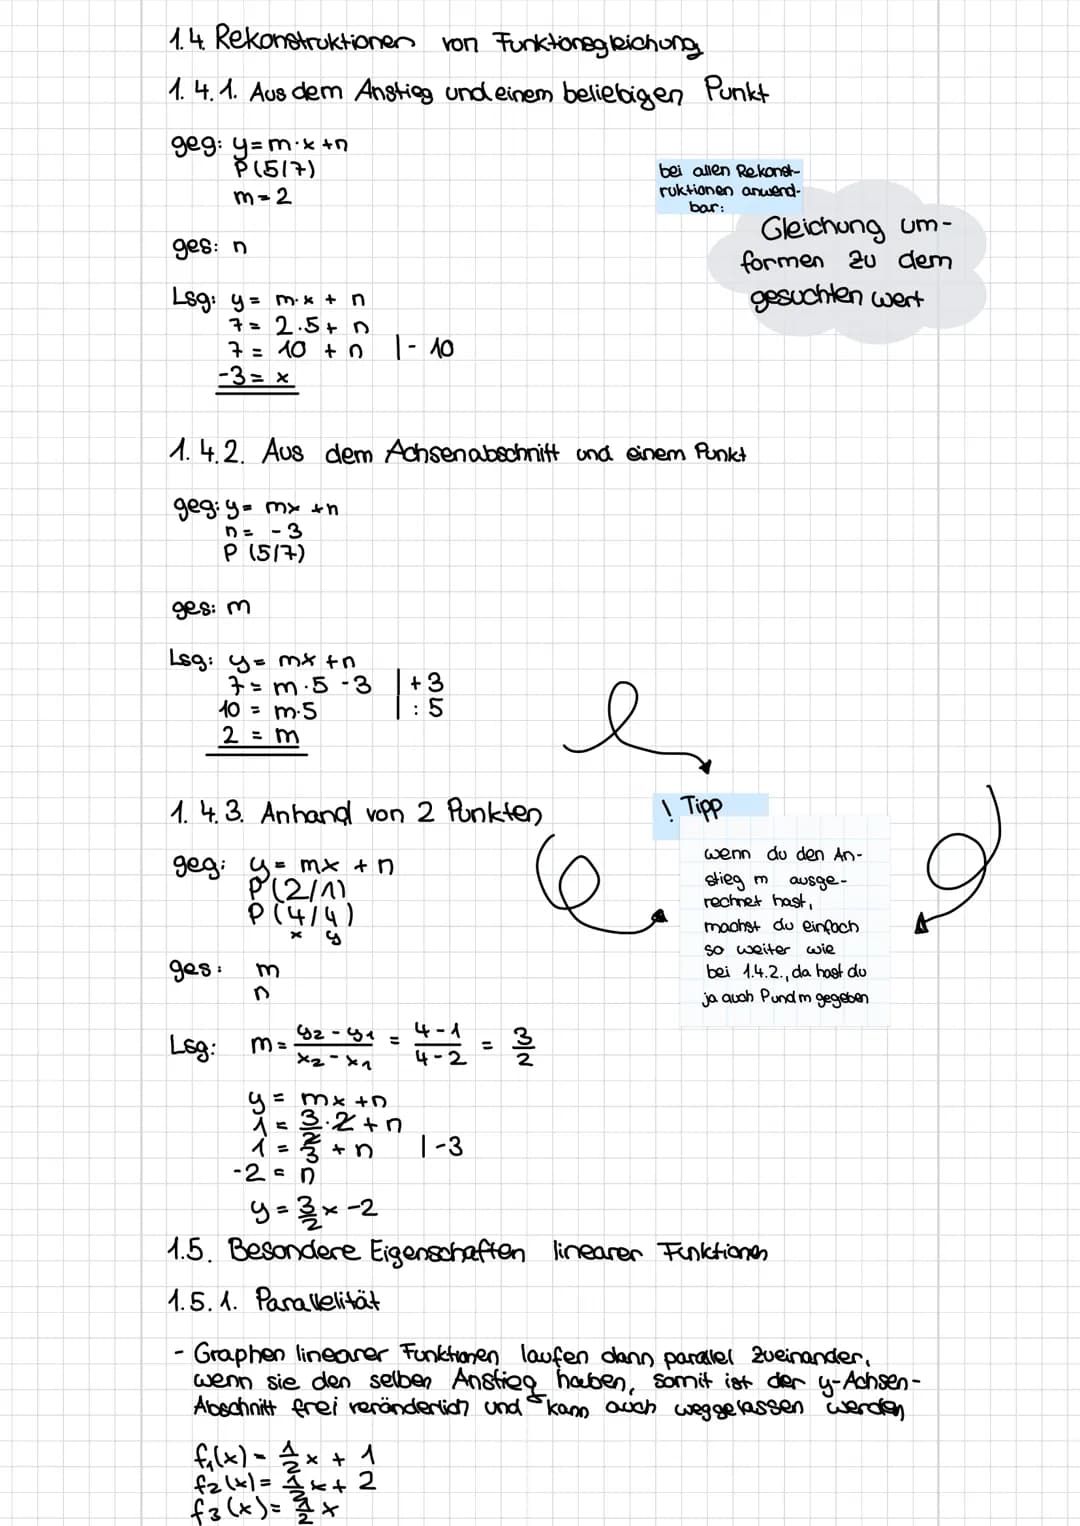 1.4 Rekonstruktionen von Funktionsgleichung
1.4.1. Aus dem Anstieg und einem beliebigen Punkt
geg: y = m·x + n
P(5/7)
m = 2
bei allen Rekonst-
ruktionen anwend-
bar:
Gleichung um-
formen zu dem
gesuchten wert
ges: n
Lsg: y = m·x + n
7 = 2·5 + n
7 = 10 + n |- 10
-3 = x
1.4.2. Aus dem Achsenabschnitt und einem Punkt
geg: y = mx + n
n = -3
P (5/7)
ges: m
Lsg: y = mx + n
7 = m·5 - 3 | + 3
10 = m·5 | : 5
2 = m
1.4.3. Anhand von 2 Punkten
! Tipp
wenn du den An-
stieg m ausge-
rechnet hast,
machst du einfach
so weiter wie
bei 1.4.2., da hast du
ja auch P und m gegeben
geg: y = mx + n
P(2/1)
P(4/4)
x y
ges: m
n
Lsg: m = y2 - y1 / x2 - x1 = 4 - 1 / 4 - 2 = 3/2
y = mx + n
1 = 3/2 · 2 + n
1 = 3 + n | -3
-2 = n
y = 3/2 x - 2
1.5. Besondere Eigenschaften linearer Funktionen
1.5.1. Parallelität
- Graphen linearer Funktionen laufen dann parallel zueinander,
wenn sie den selben Anstieg haben, somit ist der y-Achsen-
Abschnitt frei veränderlich und kann auch weggelassen werden
f1(x) = 1/2 x + 1
f2(x) = 1/2 x + 2
f3(x) = 1/2 x